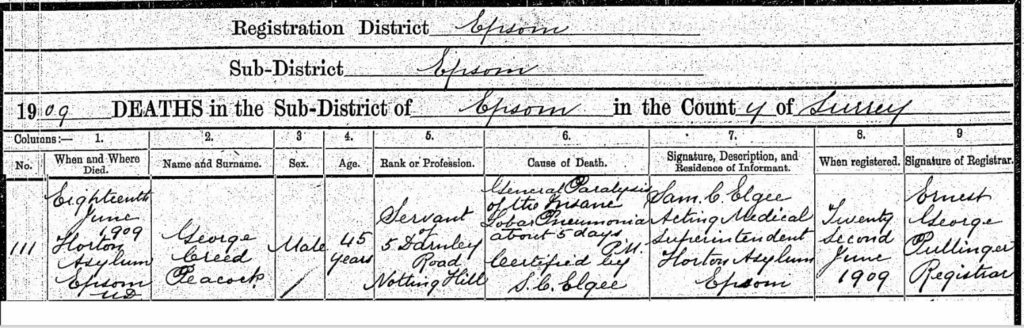 Registration District Epsom
Sub-District Epsom
1909 DEATHS in the Sub-District of Epsom in the County of Surrey
Columns:— 1. 2. 3 4. 5. 6. 7. 8. 9
No. When and Where Died. Name and Surname. Sex. Age. Rank or Profession. Cause of Death. Signature, Description, and Residence of Informant. When registered. Signature of Registrar.
111
Eighteenth
June
1909
Horton
Asylum
Epsom
U.D
George
Creed
Peacock
Male
45
years
Servant
of
5 Darnley
Road
Notting Hill
General Paralysis
of the Insane
Lobar Pneumonia
about 5 days
P.M.
Certified by
S. C. Elgee
Sam. C. Elgee
Acting Medical
Superintendent
Horton Asylum
Epsom
Twenty
Second
June
1909
Ernest
George
Pullinger
Registrar